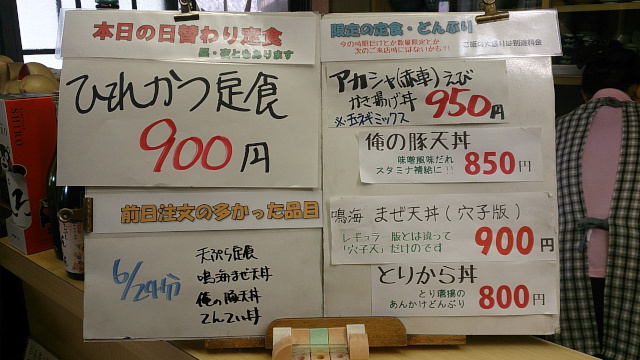 本日の日替わり定食
昼・夜ともあります
ひれかつ定食
900円
前日注文の多かった品目
6/24分
天ぷら定食
鳴海まぜ天丼
俺の豚天丼
てんてい丼
限定の定食・どんぶり
今の時期だけとか数量限定とか
次のご来店時にはないかも?!
ご飯の大盛りは別途料金
アカシャ(赤車)えび
かき揚げ丼 950円
※玉ネギミックス
俺の豚天丼
味噌風味だれ
スタミナ補給に!! 850円
鳴海 まぜ天丼(穴子版)
レギュラー版とは違って
「穴子天」だけのです 900円
とりから丼
とり唐揚の
あんかけどんぶり 800円